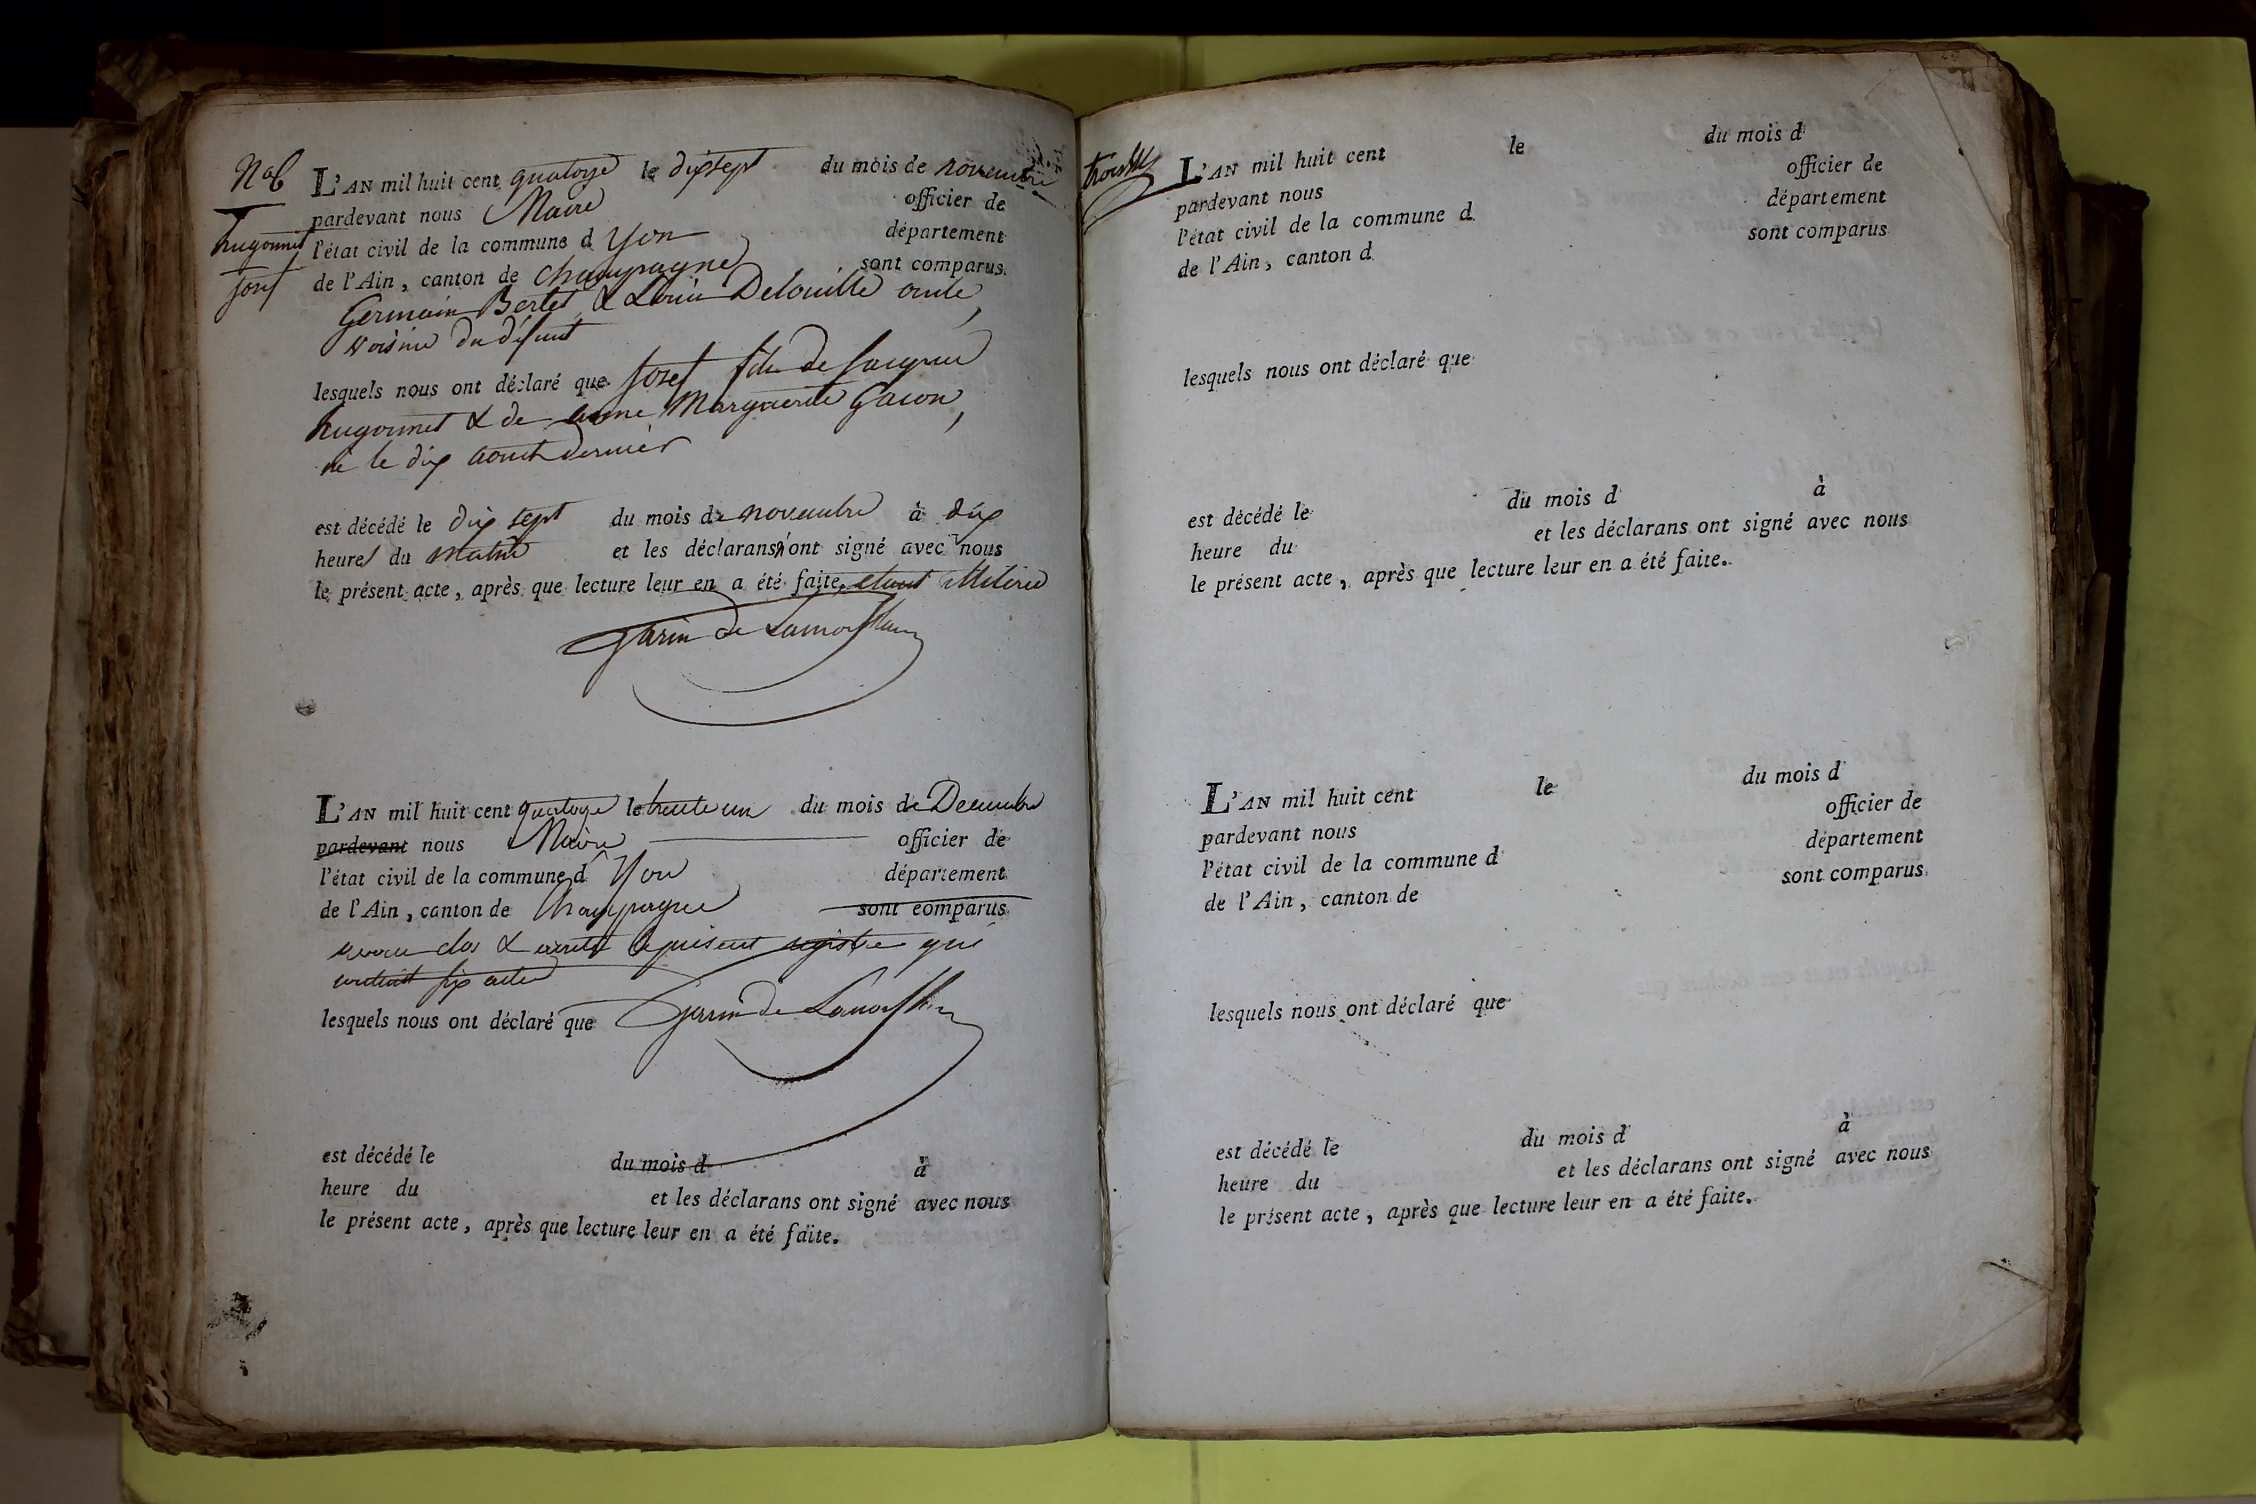 N°6
hugonnet
josef
L'AN mil huit cent quatorze le dix sept du mois de novembre
pardevant nous Maire officier de
l'état civil de la commune d'yon département
de l'Ain, canton de champagne sont comparus
Germain Bertet & Louis Delouille oncle,
voisins du défunt
lesquels nous ont déclaré que josef fils de jacques
hugonnet & de anne Marguerite Gacon,
né le dix aoust dernier
est décédé le dix sept du mois de novembre à dix
heures du matin et les déclarans n'ont signé avec nous
le présent acte, après que lecture leur en a été faite. etant illitéré
Garin de Lamorflan
L'AN mil huit cent quatorze le trente un du mois de Decembre
pardevant nous Maire officier de
l'état civil de la commune d'yon département
de l'Ain, canton de Champagne sont comparus
avons clos & arreté le présent registre qui
contient six actes
lesquels nous ont déclaré que Garin de Lamorflan
est décédé le du mois d à
heure du et les déclarans ont signé avec nous
le présent acte, après que lecture leur en a été faite.
L'AN mil huit cent le du mois d
pardevant nous officier de
l'état civil de la commune d département
de l'Ain, canton d sont comparus
lesquels nous ont déclaré que
est décédé le du mois d à
heure du et les déclarans ont signé avec nous
le présent acte, après que lecture leur en a été faite.
L'AN mil huit cent le du mois d
pardevant nous officier de
l'état civil de la commune d département
de l'Ain, canton de sont comparus
lesquels nous ont déclaré que
est décédé le du mois d à
heure du et les déclarans ont signé avec nous
le présent acte, après que lecture leur en a été faite.